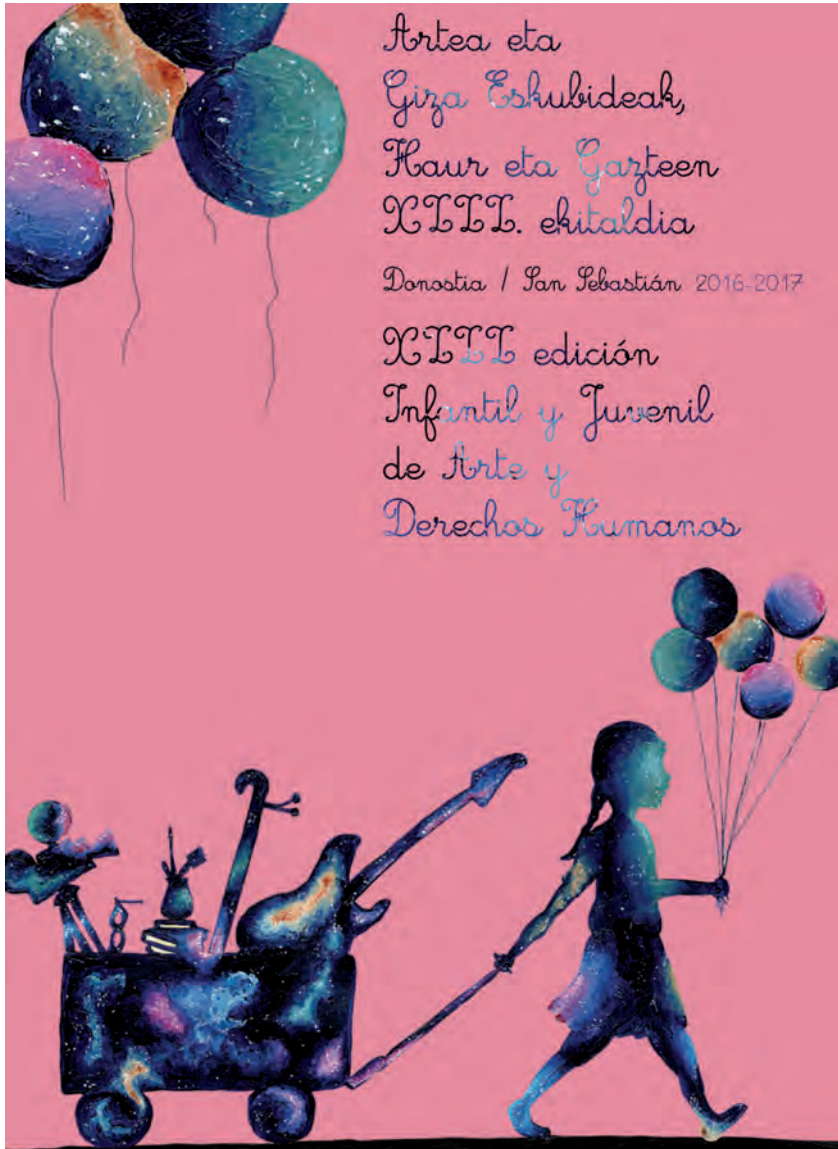 Artea eta
Giza Eskubideak,
Haur eta Gazteen
XIII. ekitaldia
Donostia / San Sebastián 2016-2017
XIII edición
Infantil y Juvenil
de Arte y
Derechos Humanos